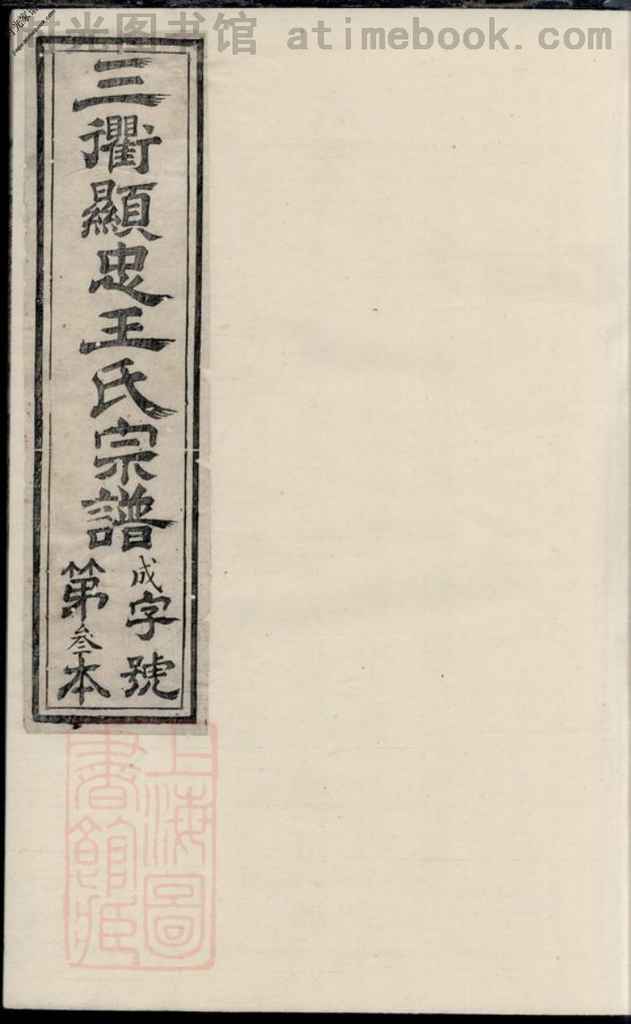 时光图书馆 atimebook.com
三衢顯忠王氏宗譜
成字號
第叁本
上海圖
書館藏